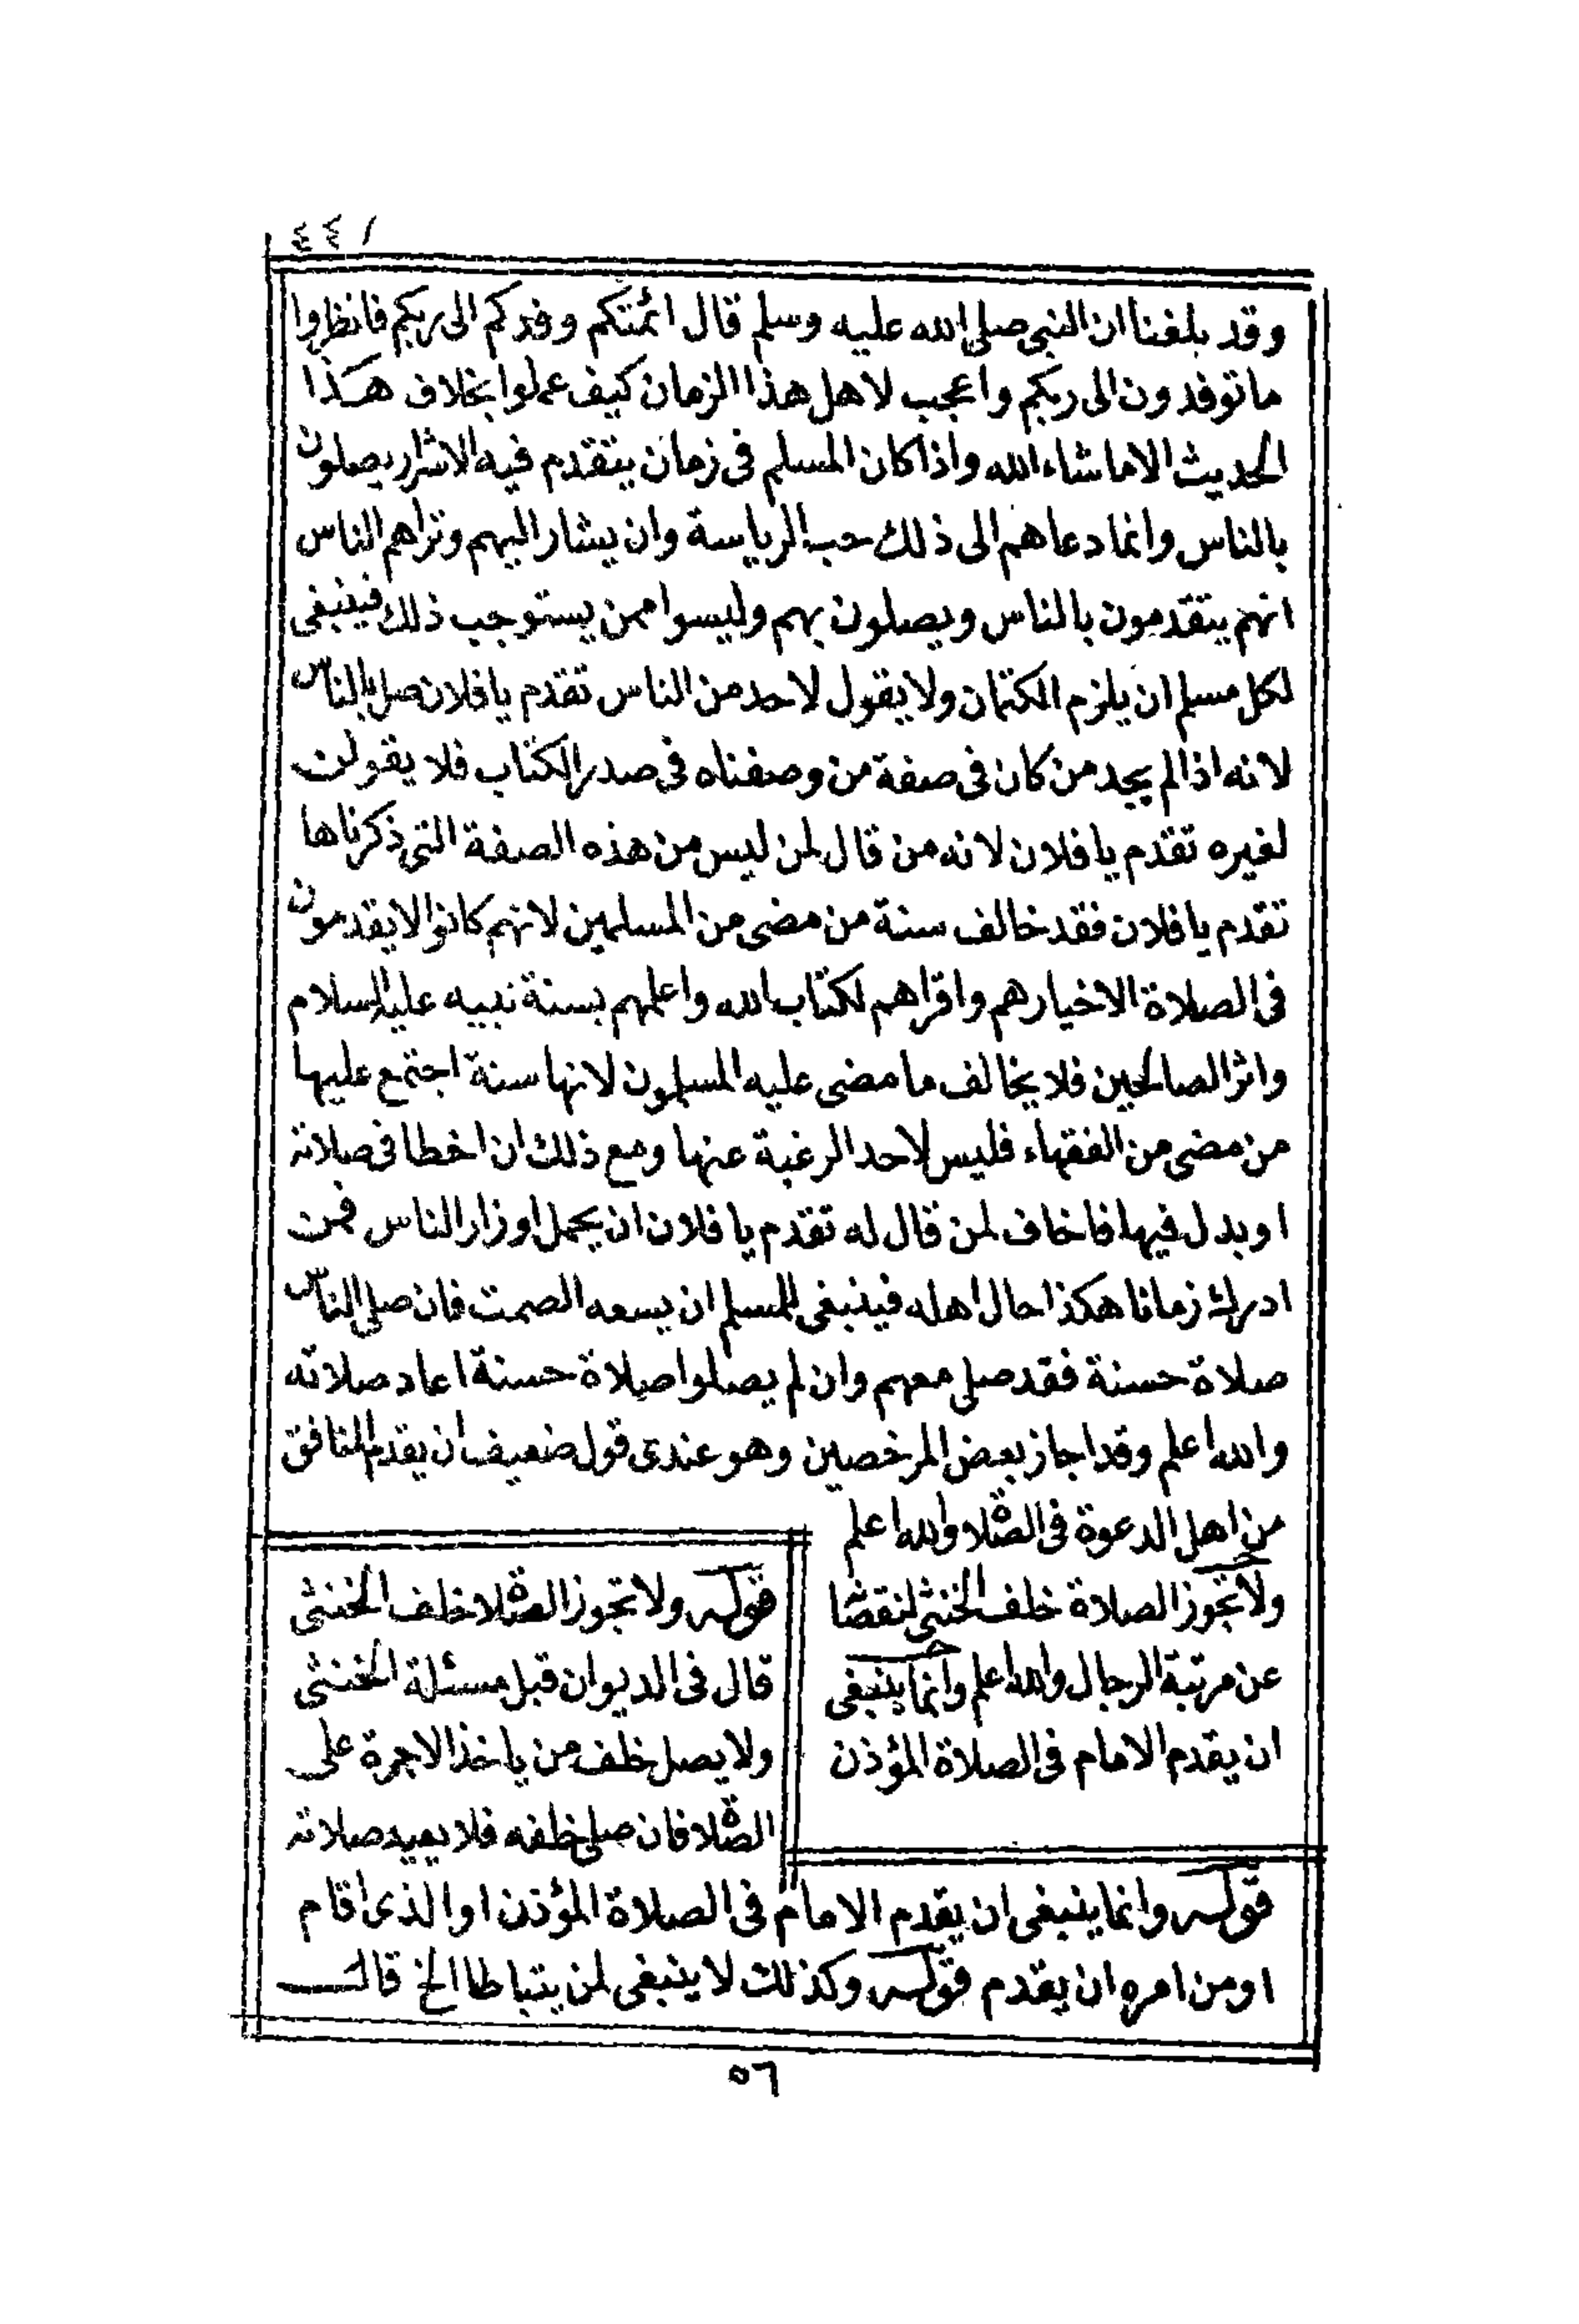 ٤٤١
وقد بلغنا ان النبي صلى الله عليه وسلم قال ائمتكم وفدكم الى ربكم فانظروا
ما توفدون الى ربكم واعجب لاهل هذا الزمان كيف عملوا بخلاف هذا
الحديث الا ما شاء الله واذا كان المسلم فى زمان يتقدم فيه الاشرار يصلون
بالناس وانما دعاهم الى ذلك حب الرياسة وان يشار اليهم وتراهم الناس
انهم يتقدمون بالناس ويصلون بهم وليسوا ممن يستوجب ذلك فينبغى
لكل مسلم ان يلزم الكتمان ولا يقول لاحد من الناس تقدم يا فلان صل بالناس
لانه اذا لم يجد من كان فى صفة من وصفناه فى صدر الكتاب فلا يقولن
لغيره تقدم يا فلان لانه من قال لمن ليس من هذه الصفة التى ذكرناها
تقدم يا فلان فقد خالف سنة من مضى من المسلمين لانهم كانوا لا يقدمون
فى الصلاة الا خيارهم واقراهم لكتاب الله واعلمهم بسنة نبيه عليه السلام
واثر الصالحين فلا يخالف ما مضى عليه المسلمون لانها سنة اجتمع عليها
من مضى من الفقهاء فليس لاحد الرغبة عنها ومع ذلك ان اخطا فى صلاته
او بدل فيها فاخاف لمن قال له تقدم يا فلان ان يحمل اوزار الناس فمن
ادرك زمانا هكذا حال اهله فينبغى للمسلم ان يسعه الصمت فان صلى الناس
صلاة حسنة فقد صلى معهم وان لم يصلوا صلاة حسنة اعاد صلاته
والله اعلم وقد اجاز بعض المرخصين وهو عندى قول ضعيف ان يقدم المنافق
من اهل الدعوة فى الصلاة والله اعلم
ولا تجوز الصلاة خلف الخنثى لنقصها
عن مرتبة الرجال والله اعلم وانما ينبغى
ان يقدم الامام فى الصلاة المؤذن
قوله ولا تجوز الصلاة خلف الخنثى
قال فى الديوان قبل مسئلة الخنثى
ولا يصل خلف من ياخذ الاجرة على
الصلاة فان صلى خلفه فلا يعيد صلاته
قوله وانما ينبغى ان يقدم الامام فى الصلاة المؤذن او الذى اقام
او من امره ان يقدم قوله وكذلك لا ينبغى لمن يتباطا الخ قال
٥٦